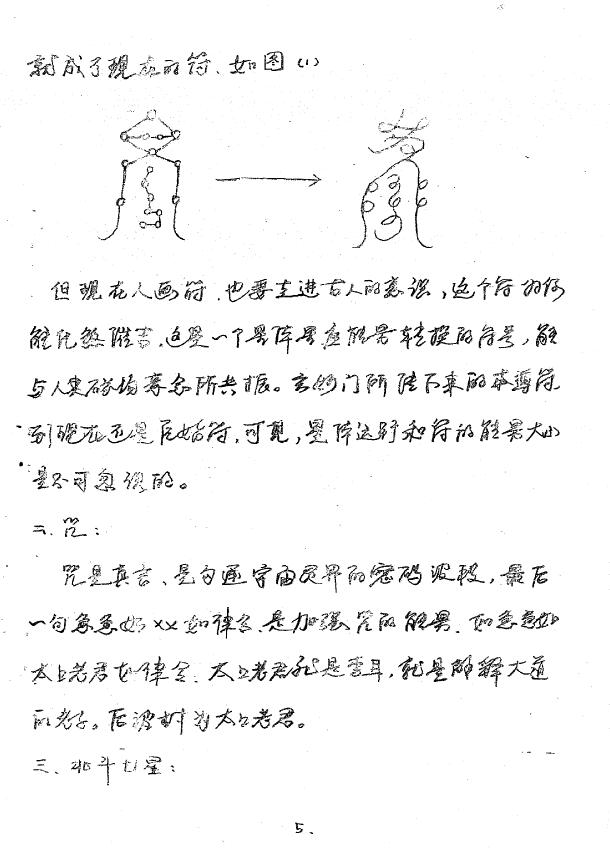 就成了现在的符、如图(1)
但现在人画符、也要走进古人的意识，这个符为何
能化煞催吉、这是一个星阵星座能量转换的符号，能
与人类磁场事象所共振。玄妙门所传下来的本薄符
到现在还是原始符，可见，星阵运行和符的能量大小
是不可忽视的。
二、咒：
咒是真言、是沟通宇宙灵界的密码波段，最后
一句急急如××如律令、是加强咒的能量、如急急如
太上老君如律令、太上老君就是李耳，就是解释大道
的老子。后被封为太上老君。
三、北斗七星：
5.